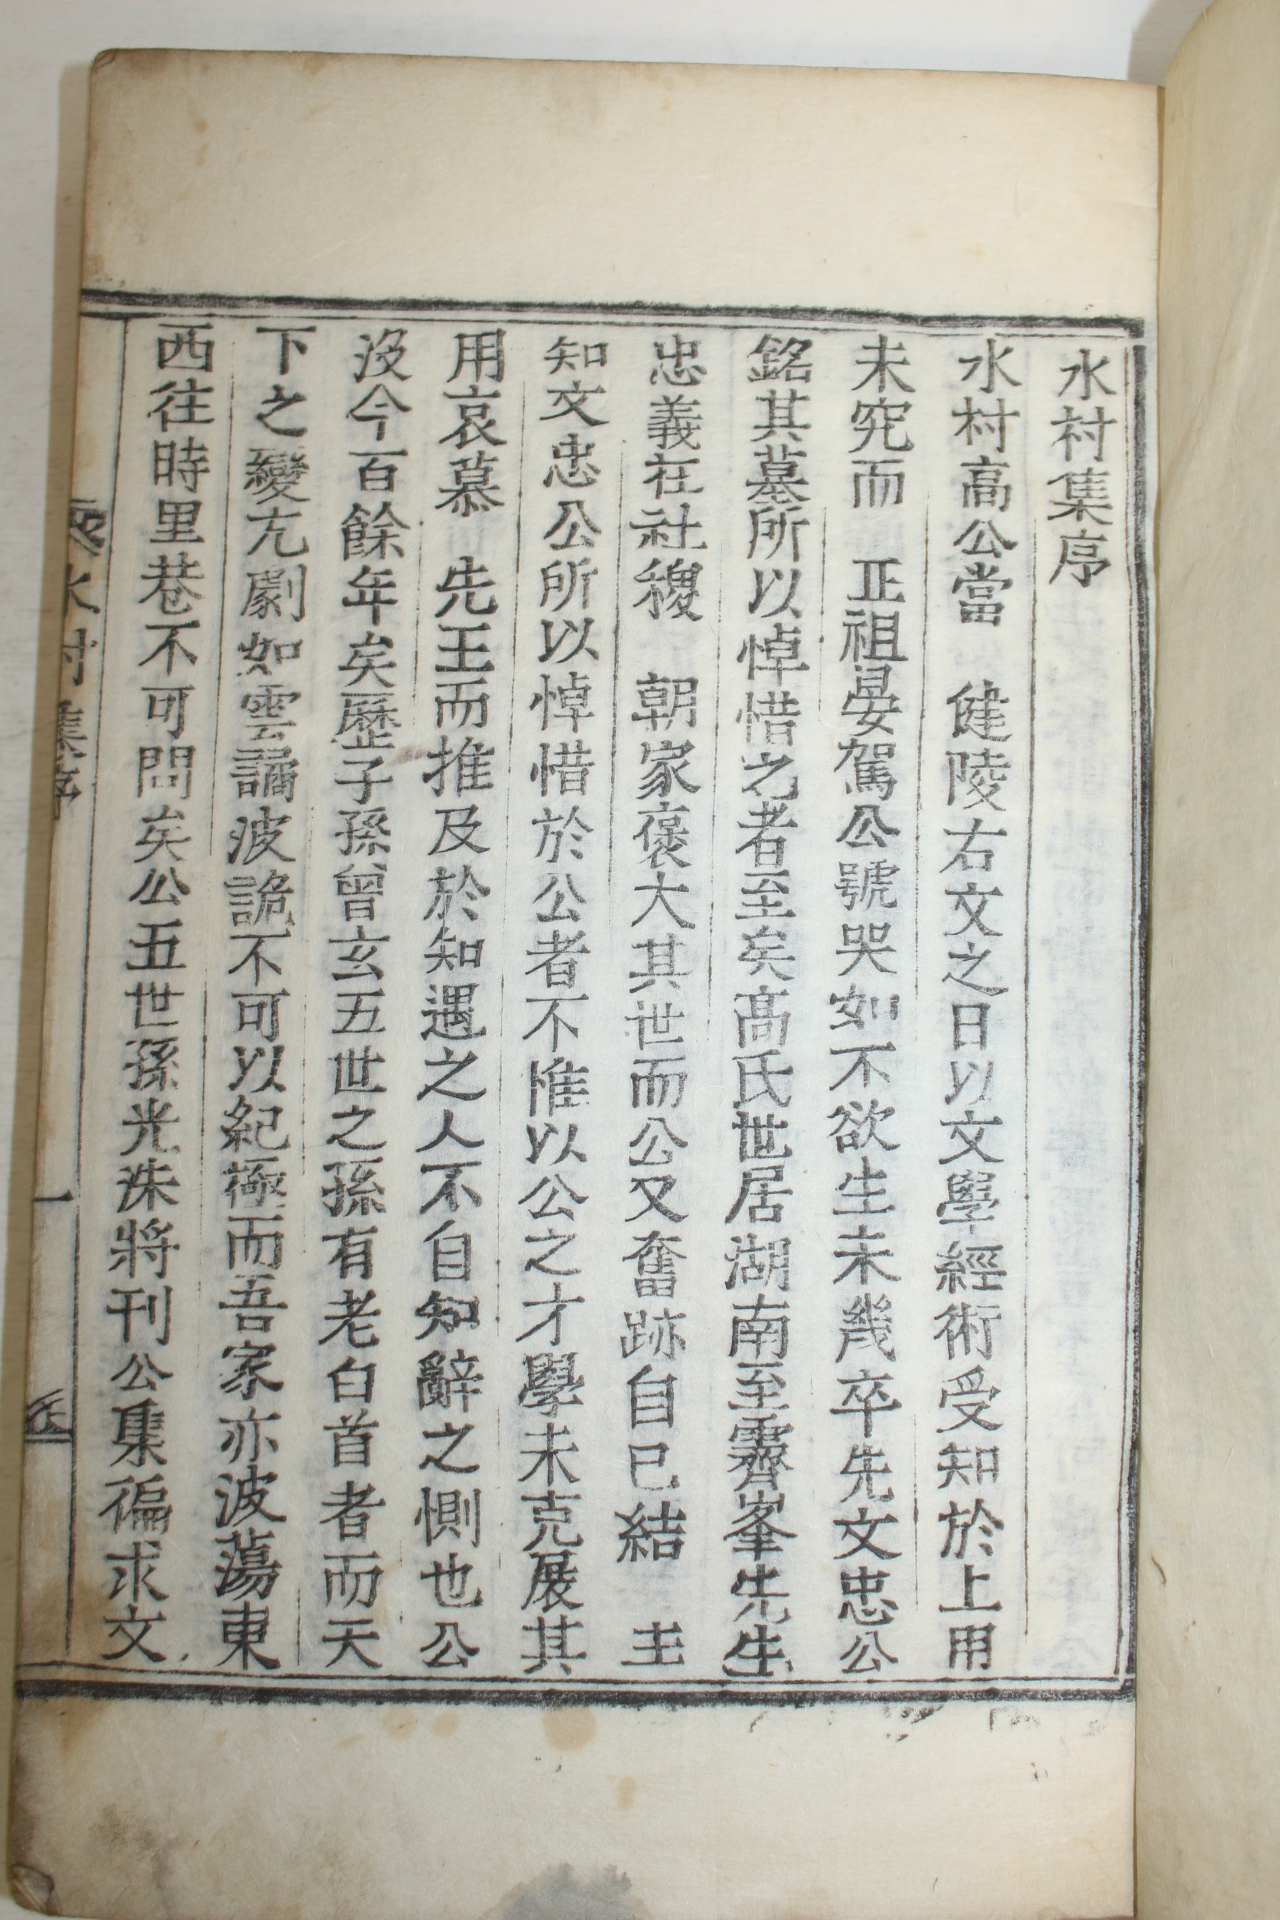 水村集序
水村高公當 健陵右文之日以文學經術受知於上用
未究而 正祖晏駕公號哭如不欲生未幾卒先文忠公
銘其墓所以悼惜之者至矣高氏世居湖南至霽峯先生
忠義在社稷 朝家褒大其世而公又奮跡自已結 主
知文忠公所以悼惜於公者不惟以公之才學未克展其
用哀慕 先王而推及於知遇之人不自知辭之惻也公
沒今百餘年矣歷子孫曾玄五世之孫有老白首者而天
下之變尤劇如雲譎波詭不可以紀極而吾家亦波蕩東
西往時里巷不可問矣公五世孫光洙將刊公集徧求文
水村集序
一